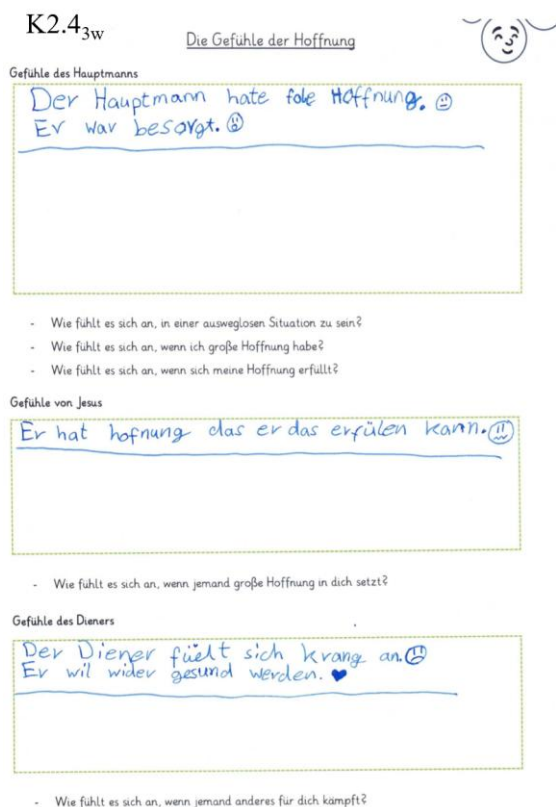 K2.4₃w
Die Gefühle der Hoffnung
Gefühle des Hauptmanns
Der Hauptmann hate fole Hoffnung.
Er war besorgt.
- Wie fühlt es sich an, in einer ausweglosen Situation zu sein?
- Wie fühlt es sich an, wenn ich große Hoffnung habe?
- Wie fühlt es sich an, wenn sich meine Hoffnung erfüllt?
Gefühle von Jesus
Er hat hofnung das er das erfülen kann.
- Wie fühlt es sich an, wenn jemand große Hoffnung in dich setzt?
Gefühle des Dieners
Der Diener füelt sich krang an.
Er wil wider gesund werden.
- Wie fühlt es sich an, wenn jemand anderes für dich kämpft?